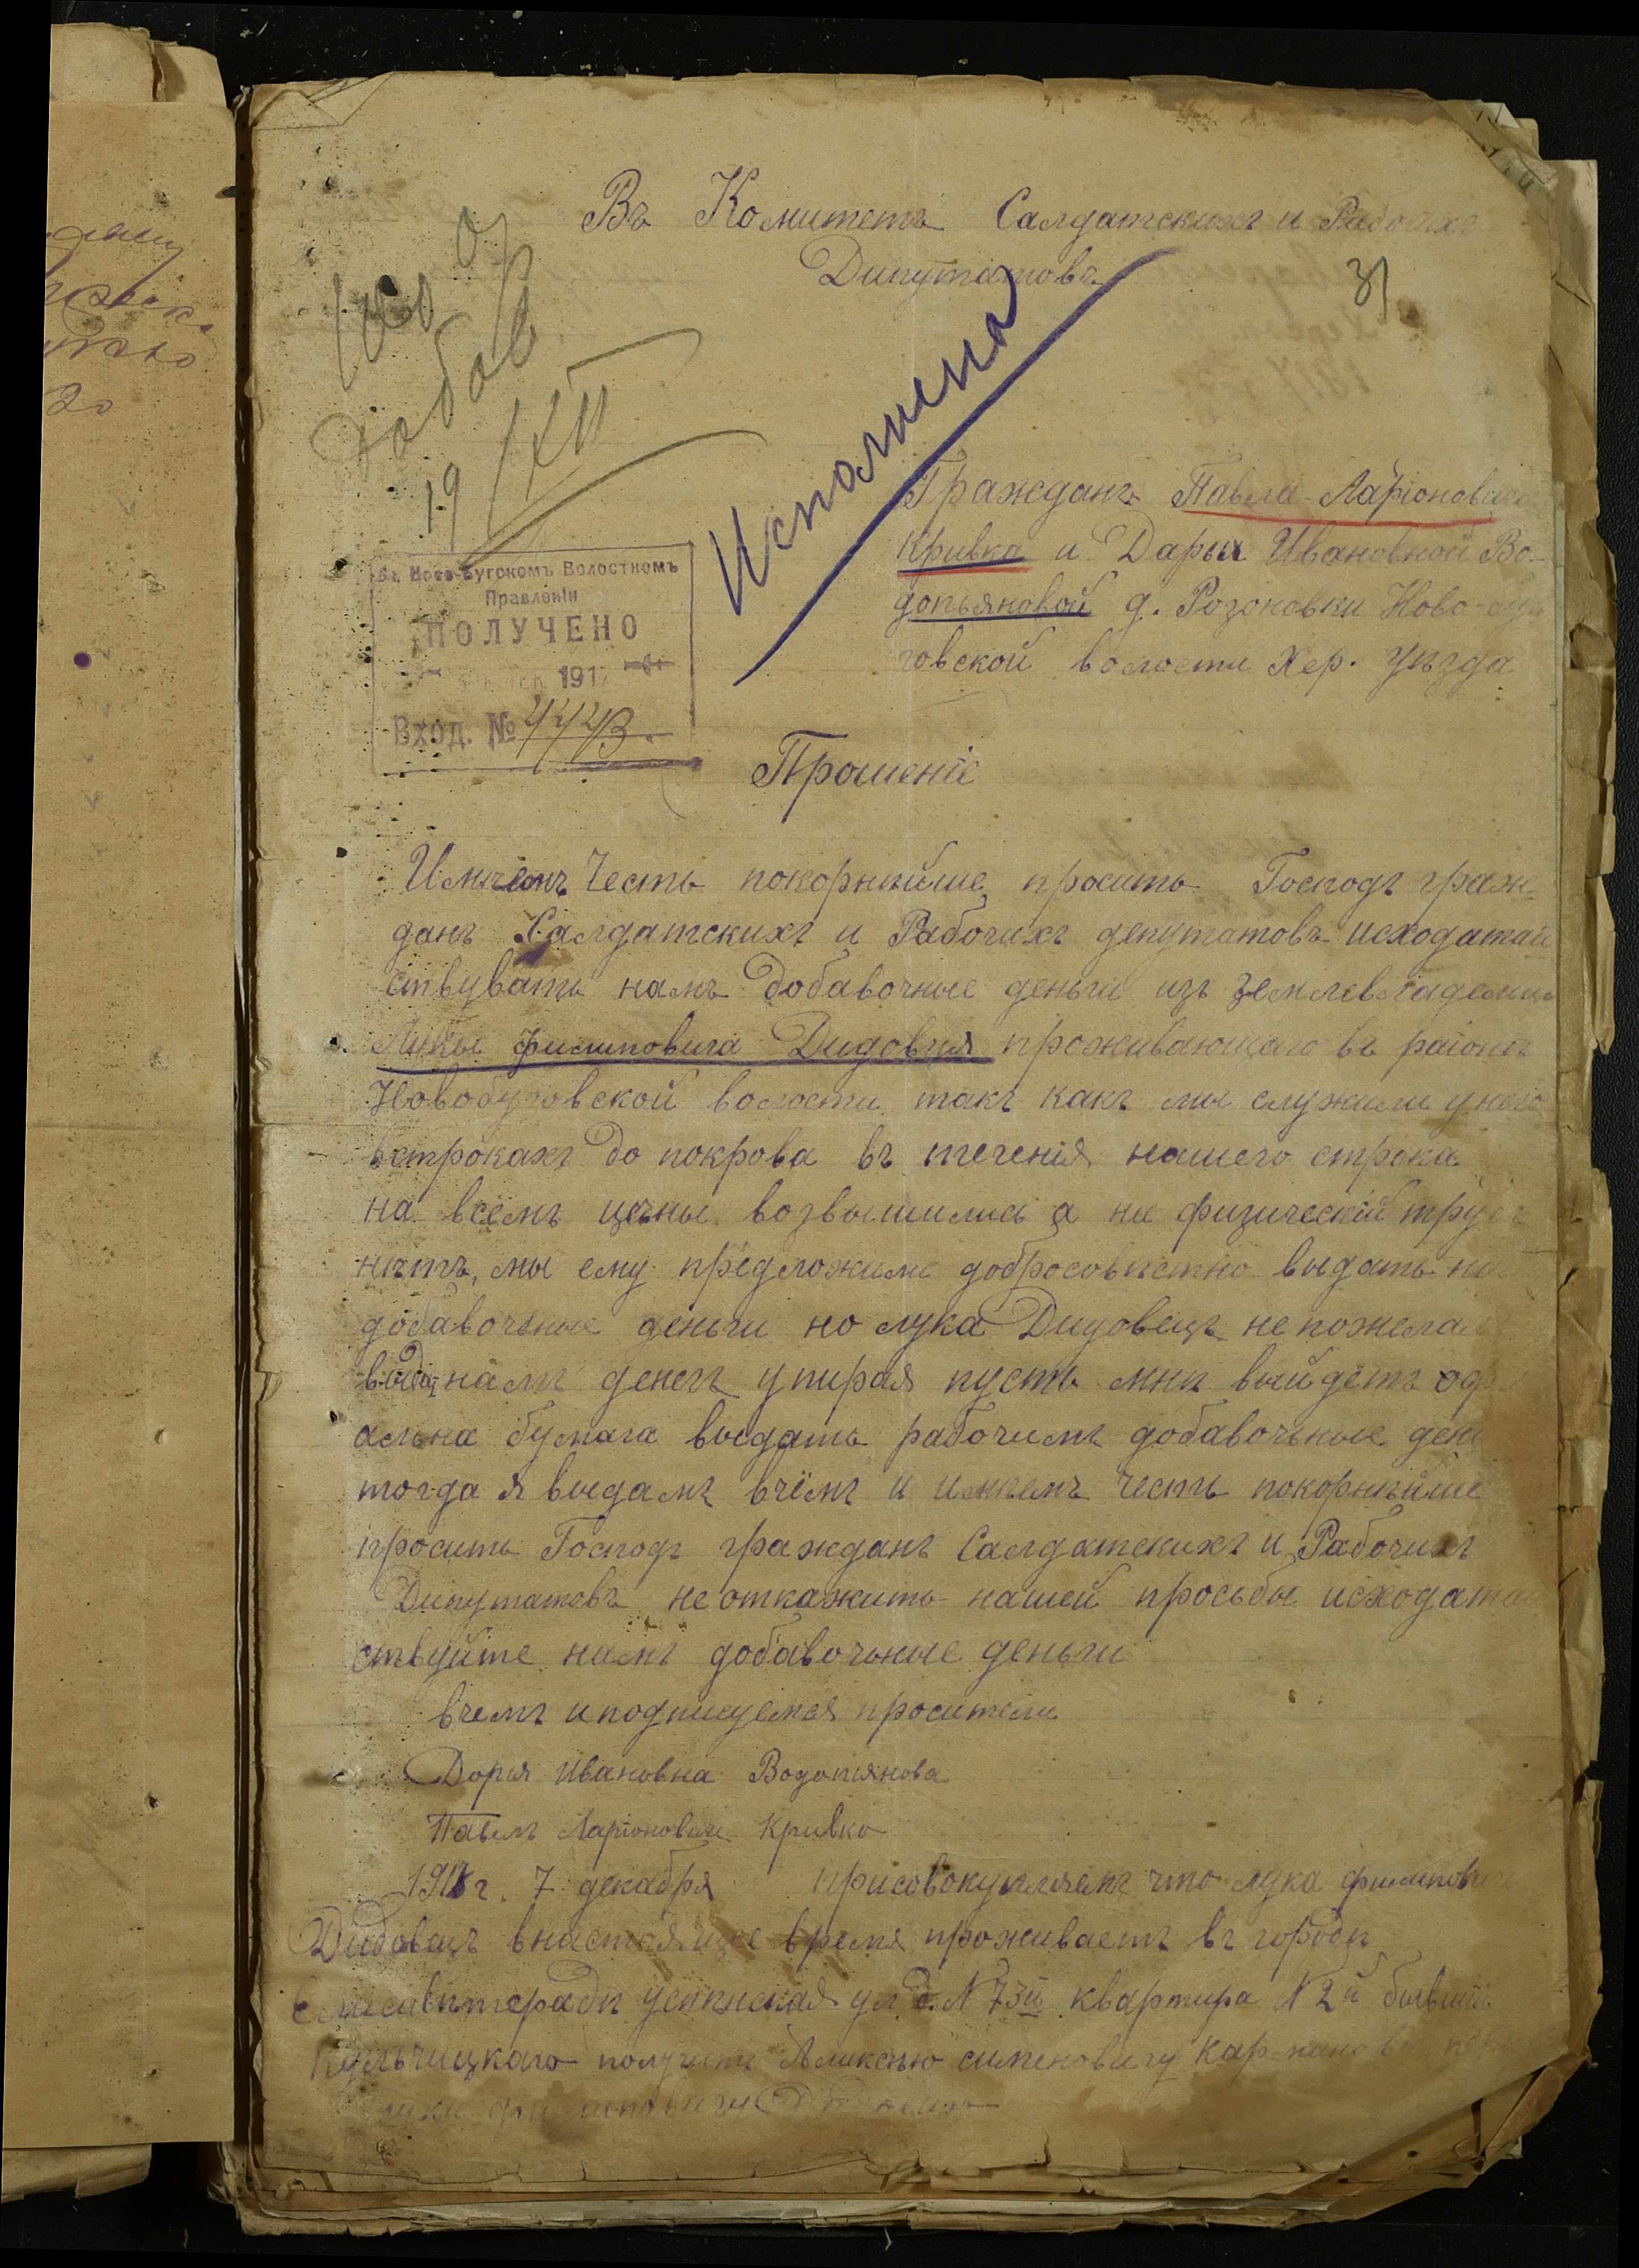 Въ Комитетъ Салдатскихъ и Рабочихъ
Дипутатовъ
31
добав
19/XII
Исполнено
Гражданъ Павла Ларіоновича
Кривка и Дарьи Ивановной Во-
допьяновой д. Розоновки Ново-
говской волости Хер. уѣзда
Въ Ново-Бугскомъ Волостномъ
Правленіи
ПОЛУЧЕНО
191
Вход. № 4443.
Прошеніе
Имѣемъ Честь покорнѣйше просить Господъ граж-
данъ Салдатскихъ и Рабочихъ депутатовъ исходатай
ствувать намъ добавочные деньги изъ землевладельца
Луки филиповича Дидовця проживающаго въ районѣ
Новобуговской волости такъ какъ мы служили у него
встрокахъ до покрова въ теченія нашего строка
на всемъ цѣны возвысились а на физическій
нѣтъ, мы ему предложили добросовѣстно выдать
добавочьные деньги но лука Дидовецъ не пожелал
намъ денегъ упирая пусть мнѣ выйдетъ
альна бумага выедать рабочимъ добавочьные
тогда я выедамъ вчёмъ и имѣемъ честь покорнѣйше
просить Господъ гражданъ Салдатскихъ и Рабочихъ
Дипутатовъ не откажить нашей просьбы исходатай
ствуйте намъ добавочьные деньги
вчемъ и подписуемся просители
Дорья Ивановна Водопянова
Павелъ Ларіоновичь Кривко
1917 г. 7 декабря присовокупляемъ что лука филипович
Дидовецъ внастоящее время проживаетъ въ городѣ
Елисаветградѣ успенская ул. д. N 73й квартира N 2й бывшій
Кульчицкаго получить Аликсѣю сименовичу